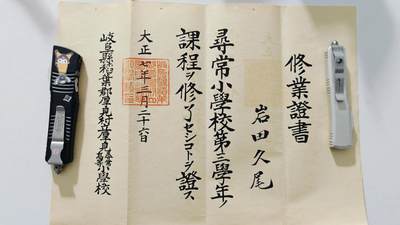 修業證書
岩田久尾
尋常小學校第三學年ノ
課程ヲ修了セシコトヲ證ス
大正七年三月二十六日
岐阜縣稻葉郡
小學校